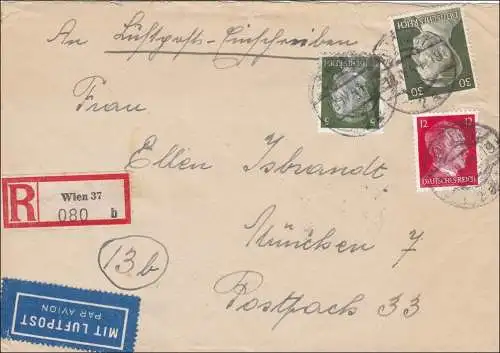 An Luftpost-Einschreiben
Frau
Ellen Isbrandt
München 7
Postfach 33
13b
R
Wien 37
080 b
MIT LUFTPOST
PAR AVION
DEUTSCHES REICH
5
DEUTSCHES REICH
30 30
12
DEUTSCHES REICH